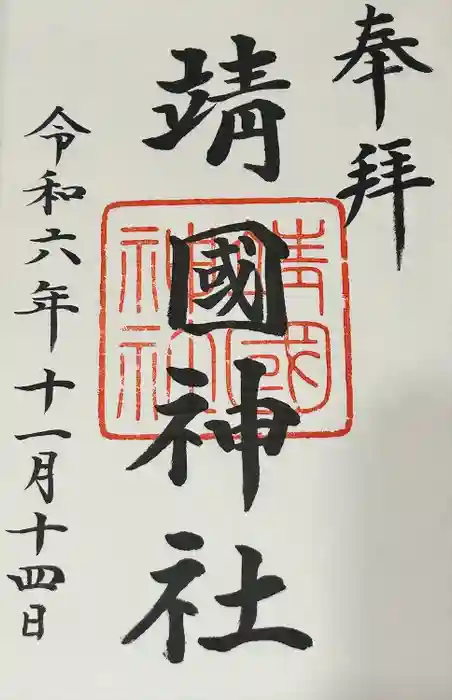 奉拝
靖國神社
靖國神社
令和六年十一月十四日